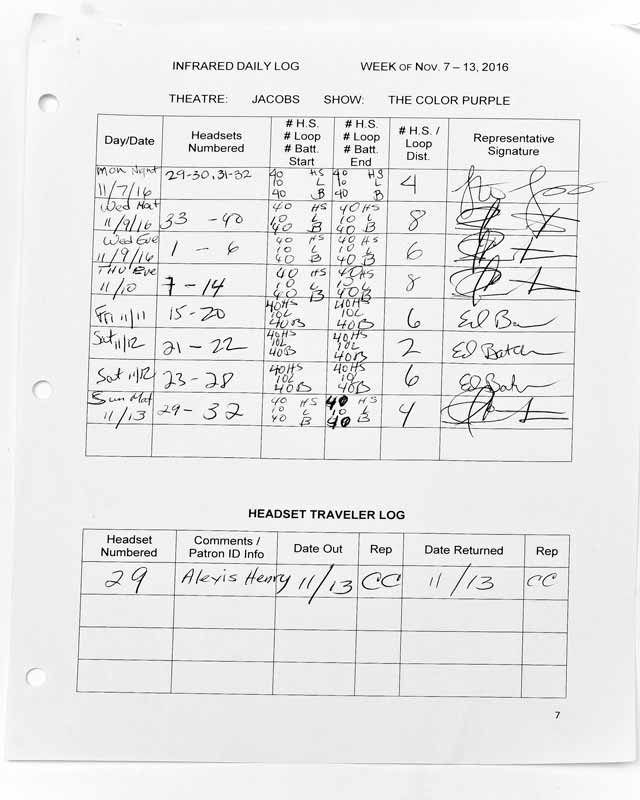 INFRARED DAILY LOG WEEK OF NOV. 7 – 13, 2016
THEATRE: JACOBS SHOW: THE COLOR PURPLE
Day/Date
Headsets
Numbered
# H.S.
# Loop
# Batt.
Start
# H.S.
# Loop
# Batt.
End
# H.S. /
Loop
Dist.
Representative
Signature
Mon Night
11/7/16
29-30, 31-32
40 HS
10 L
40 B
40 HS
10 L
40 B
4
Wed Mat
11/9/16
33 - 40
40 HS
10 L
40 B
40 HS
10 L
40 B
8
Wed Eve
11/9/16
1 - 6
40 HS
10 L
40 B
40 HS
10 L
40 B
6
THU Eve
11/10
7 - 14
40 HS
10 L
40 B
40 HS
10 L
40 B
8
Fri 11/11
15-20
40HS
10L
40B
40HS
10L
40B
6
Sat 11/12
21 - 22
40HS
10L
40B
40HS
10L
40B
2
Ed Batch
Sat 11/12
23-28
40HS
10L
40B
40HS
10L
40B
6
Sun Mat
11/13
29- 32
40 HS
10 L
40 B
40 HS
10 L
40 B
4
HEADSET TRAVELER LOG
Headset
Numbered
Comments /
Patron ID Info
Date Out
Rep
Date Returned
Rep
29 Alexis Henry 11/13 CC 11/13 CC
7